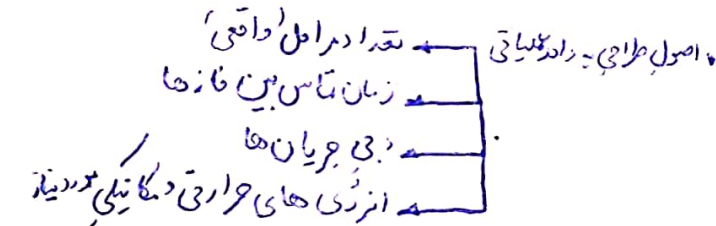 اصول طراحی واحد عملیاتی
تعداد مراحل (واقعی)
زمان تماس بین فازها
دبی جریان ها
انرژی های حرارتی و مکانیکی مورد نیاز